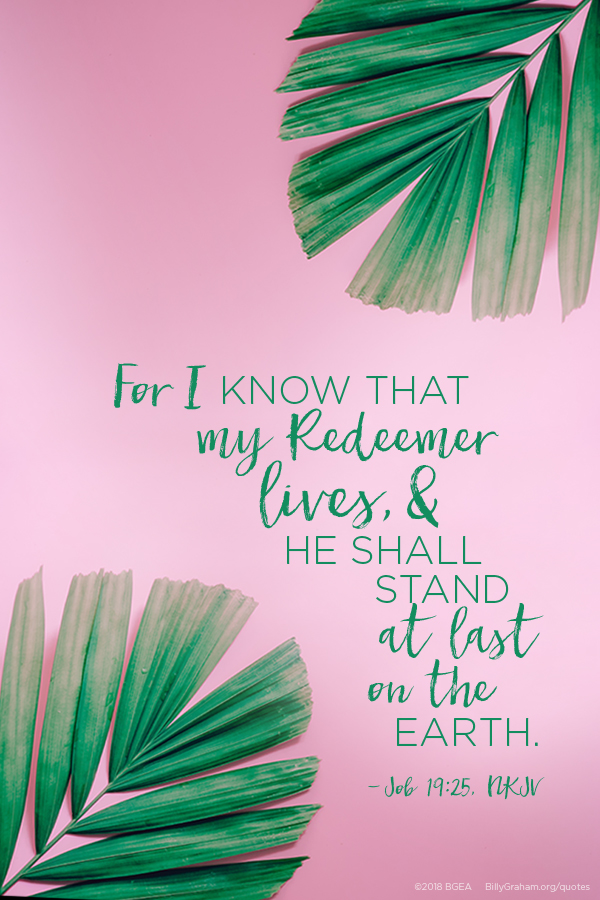 For I KNOW THAT
my Redeemer
lives, &
HE SHALL
STAND
at last
on the
EARTH.
- Job 19:25, NKJV
©2018 BGEA BillyGraham.org/quotes